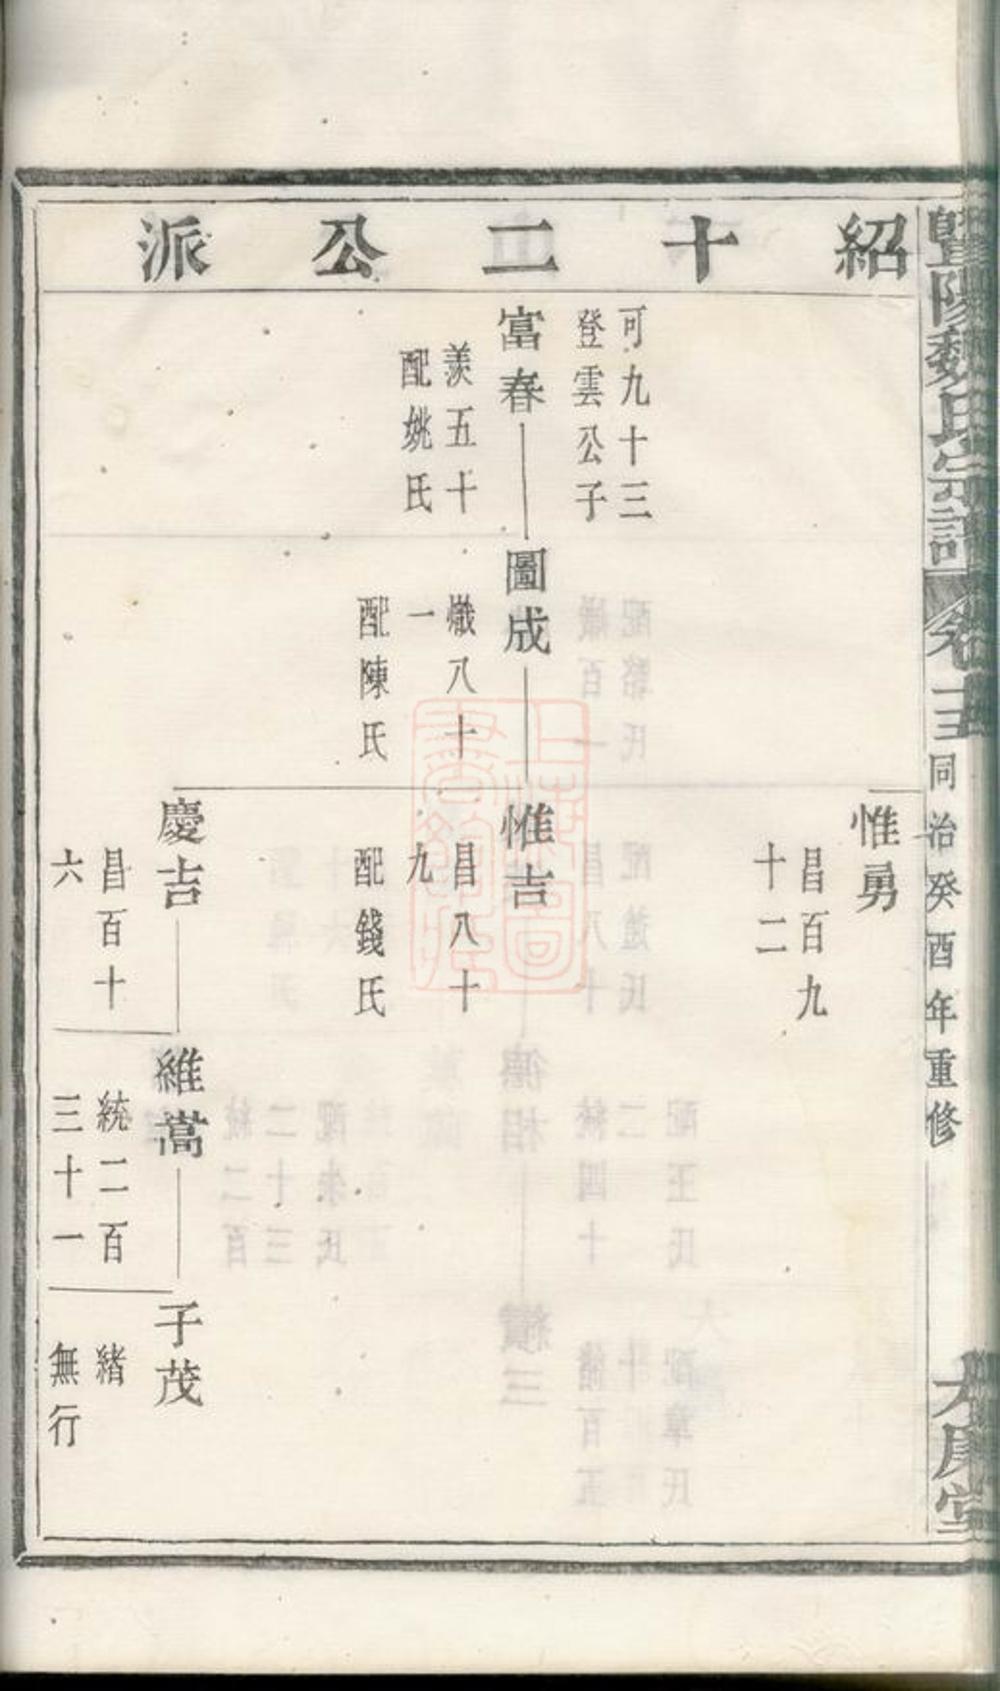 紹十二公派
暨陽魏氏宗譜
同治癸酉年重修
可九十三
登雲公子
富春
羨五十
配姚氏
圖成
熾八十
一
配陳氏
惟勇
昌百九
十二
惟吉
昌八十
九
配錢氏
慶吉
昌百十
六
維嵩
統二百
三十一
子茂
緒
無行
上海圖
書館藏